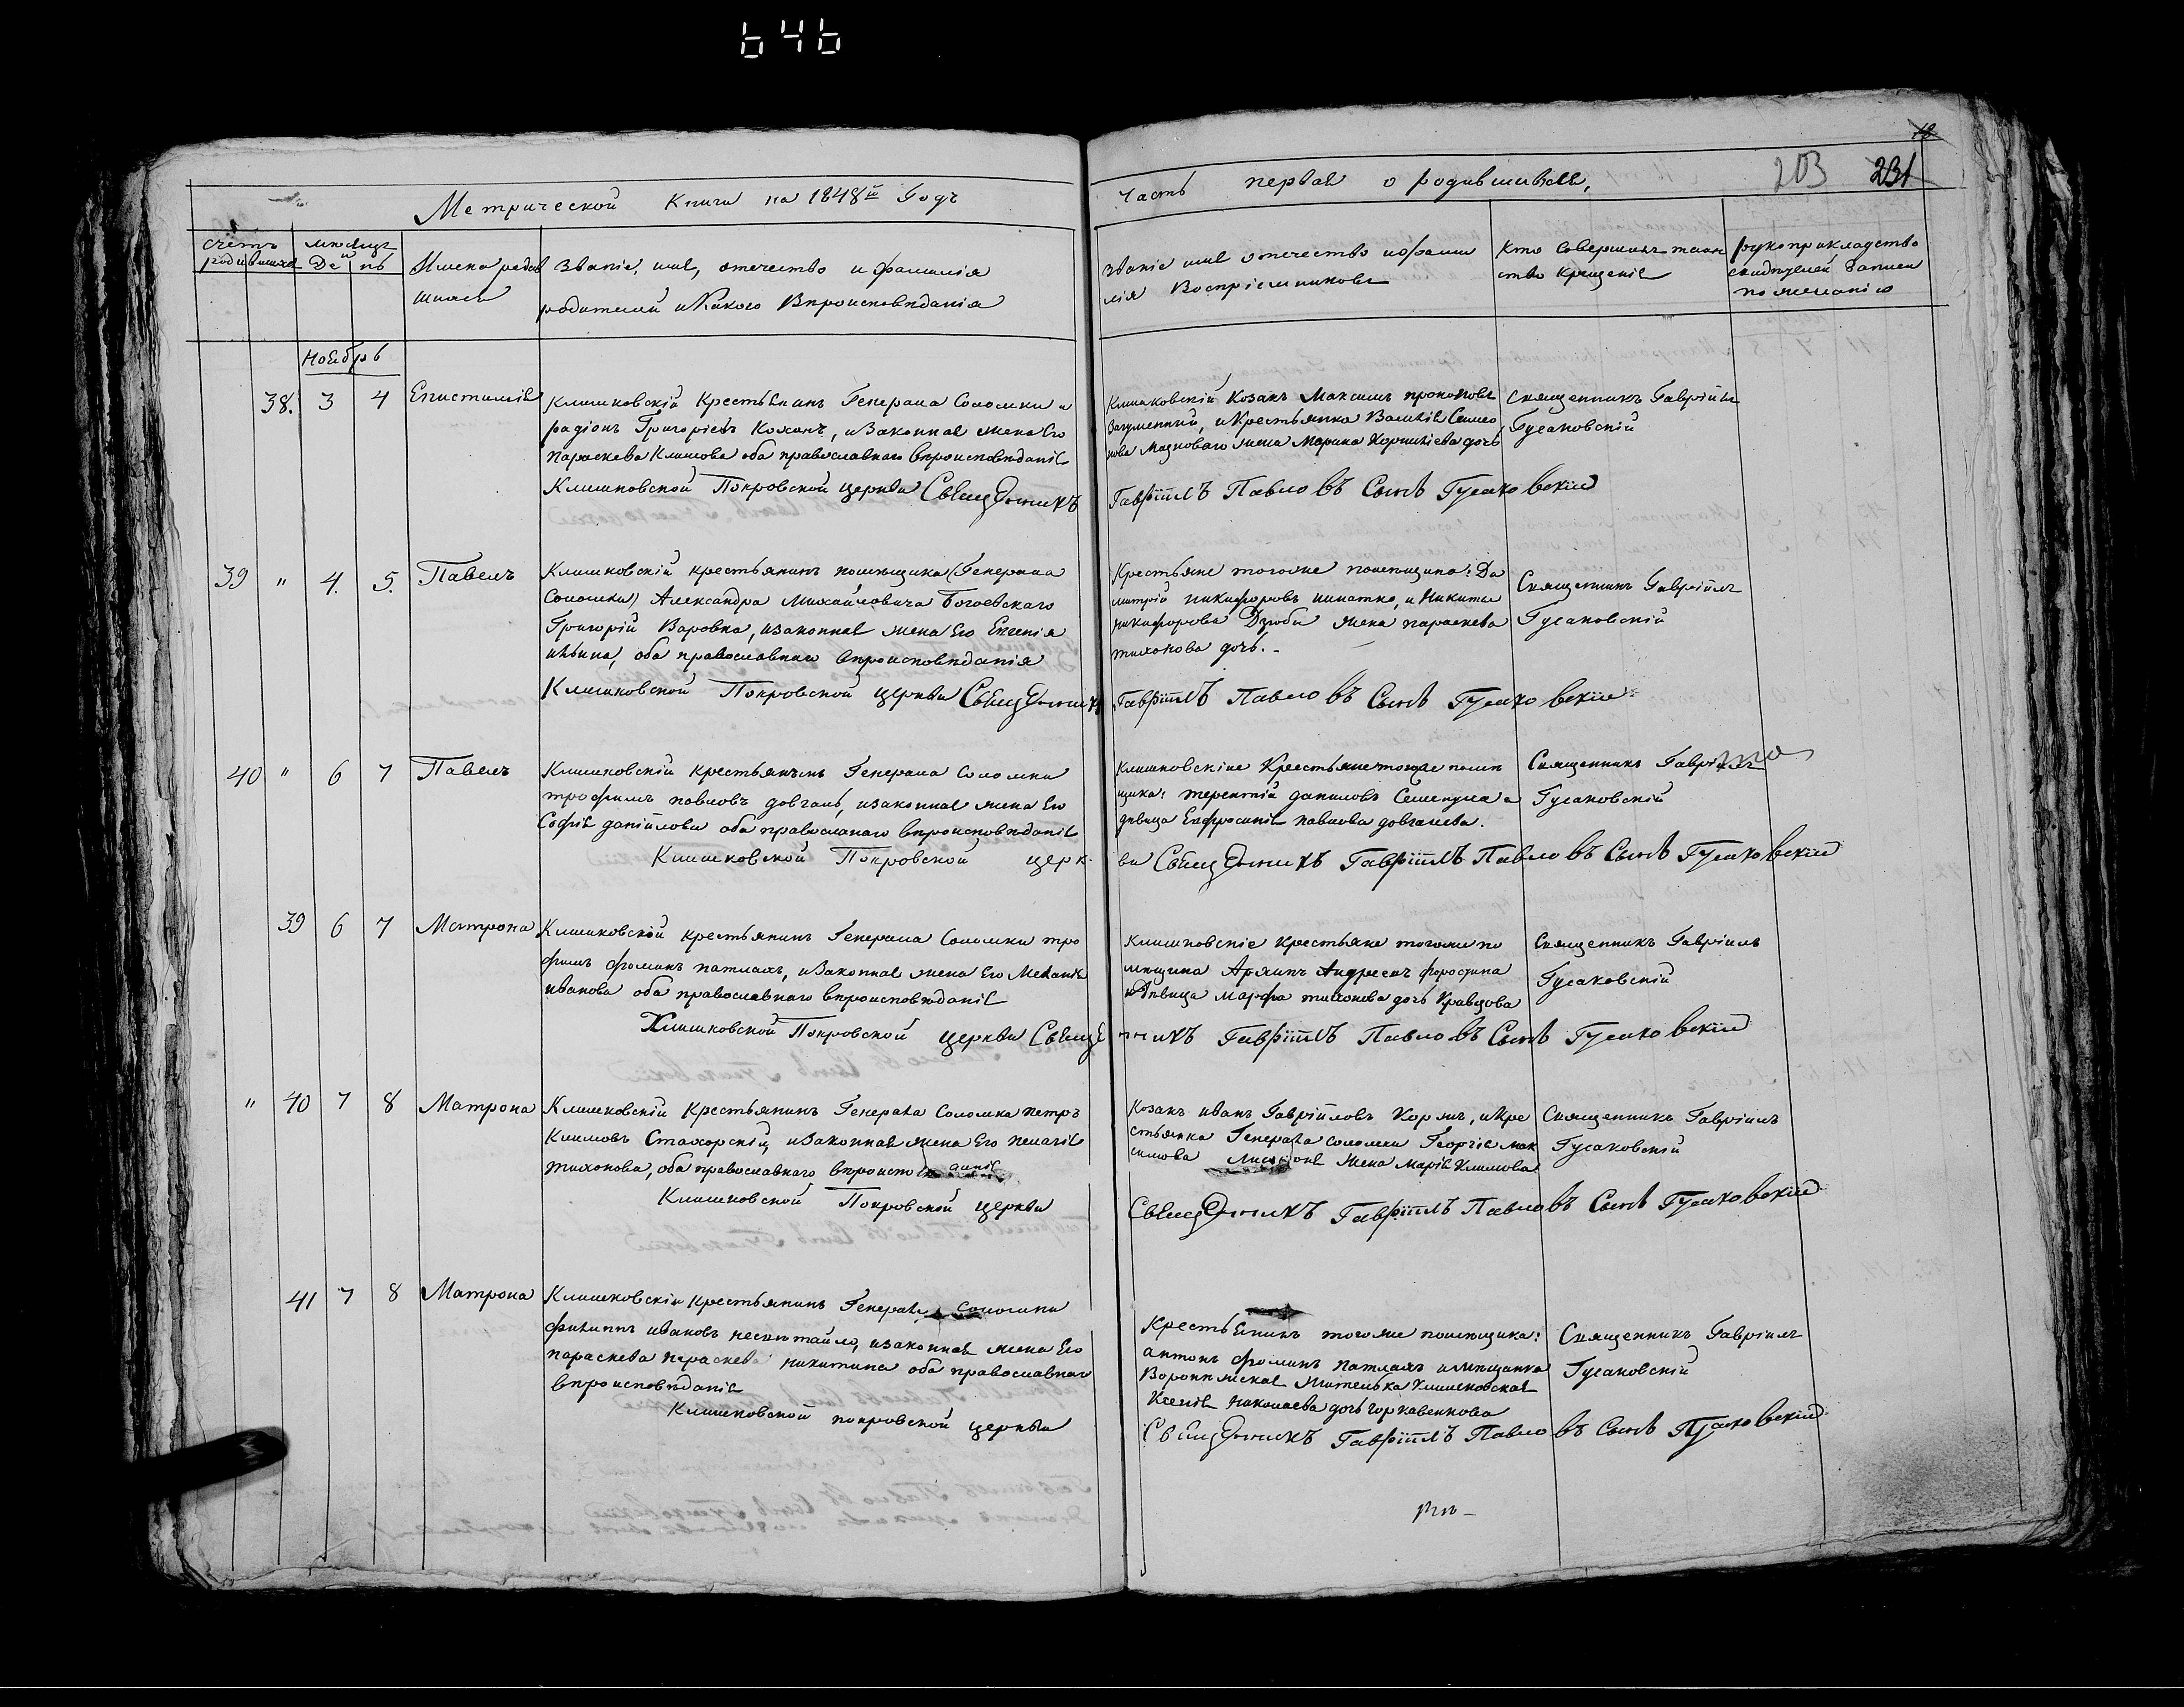 646
Метрической Книги на 1848й Годъ
Часть первая о родившихся,
203 231
Счетъ родившихся
месяцъ и День
Имена родив
шихся
Званіе, имя, отечество и фамилія
родителей и Какого Вѣроисповѣданія
Званіе имя отечество и фами
лія Воспріемниковъ
Кто Совершилъ таин
ство крещенія
рукоприкладство
свидѣтелей Записи
по желанію
Ноябрь
38. 3 4 Епистимія
Клишковскій Крестьянинъ Генерала Соломки
радіонъ Григоріевъ Коханъ, и Законная жена Его
Параскева Климова оба православнаго вѣроисповѣданія
Клишковской Покровской церкви Священникъ
Клишковскій Козакъ Максимъ прокоповъ
и Крестьянка Семео
нова жена Марина Корниліева дочь
Священникъ Гавріилъ
Гусаковскій
Гавріилъ Павловъ Сынъ Гусаковскій
39 " 4. 5. Павелъ
Клишковскій крестьянинъ помѣщика (Генерала
Соломки) Александра Михайловича Богаевскаго
Григорій Варовка, и законная жена Его Евгенія
ильина, оба православнаго вѣроисповѣданія
Клишковской Покровской церкви Священникъ
Крестьяне тогоже помѣщика: Ди
митрій никифоровъ и Никиты
никифорова Дзюбы жена параскева
тихонова дочь. -
Священникъ Гавріилъ
Гусаковскій
Гавріилъ Павловъ Сынъ Гусаковскій
40 " 6 7 Павелъ
Клишковскій крестьянинъ Генерала Соломки
трофимъ павловъ довгань, и законная жена Его
Софія даніилова оба православнаго вѣроисповѣданія
Клишковской Покровской церк-
Клишковскіе Крестьяне тогоже помѣ
щика: терентій даниловъ и
дѣвица Евфросинія павлова довганева.
Священникъ Гавріилъ
Гусаковскій
ви Священникъ Гавріилъ Павловъ Сынъ Гусаковскій
39 6 7 Матрона
Клишковской крестьянинъ Генерала Соломки тро
фимъ фоминъ патлахъ, и Законная жена Его Меланія
иванова оба православнаго вѣроисповѣданія
Клишковской Покровской церкви Священ
Клишковскіе крестьяне тогоже по
мѣщика Андреевъ форостина
и Дѣвица Марфа тихонова дочь Кравцова
Священникъ Гавріилъ
Гусаковскій
никъ Гавріилъ Павловъ Сынъ Гусаковскій
" 40 7 8 Матрона
Клишковскій Крестьянинъ Генерала Соломка петръ
Климовъ Стахорскій, и Законная жена Его пелагія
тихонова, оба православнаго
Клишковской Покровской церкви
Козакъ иванъ Гавріиловъ Коржъ, и Кре
стьянка Генерала Соломки Георгія мак
симова жена Марія Климова
Священникъ Гавріилъ
Гусаковскій
Священникъ Гавріилъ Павловъ Сынъ Гусаковскій
41 7 8 Матрона
Клишковскій Крестьянинъ Генерала Соломки
филиппъ ивановъ и законная жена Его
параскева никитина оба православнаго
вѣроисповѣданія
Клишковской покровской церкви
Крестьянинъ тогоже помѣщика:
антонъ фоминъ патлахъ и мѣщанка
Воронѣжская Жителька Клишковская
Ксенія николаева дочь
Священникъ Гавріилъ
Гусаковскій
Священникъ Гавріилъ Павловъ Сынъ Гусаковскій